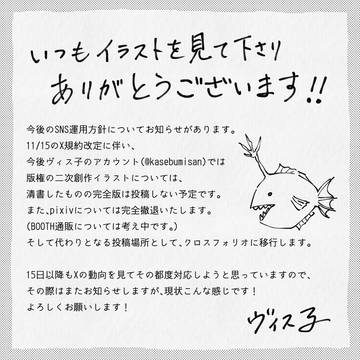 いつもイラストを見て下さり
ありがとうございます!!
今後のSNS運用方針についてお知らせがあります。
11/15のX規約改定に伴い、
今後ヴィス子のアカウント(@kasebumisan)では
版権の二次創作イラストについては、
清書したものの完全版は投稿しない予定です。
また、pixivについては完全撤退いたします。
(BOOTH通販については考え中です。)
そして代わりとなる投稿場所として、クロスフォリオに移行します。
15日以降もXの動向を見てその都度対応しようと思っていますので、
その際はまたお知らせしますが、現状こんな感じです!
よろしくお願いします!
ヴィス子